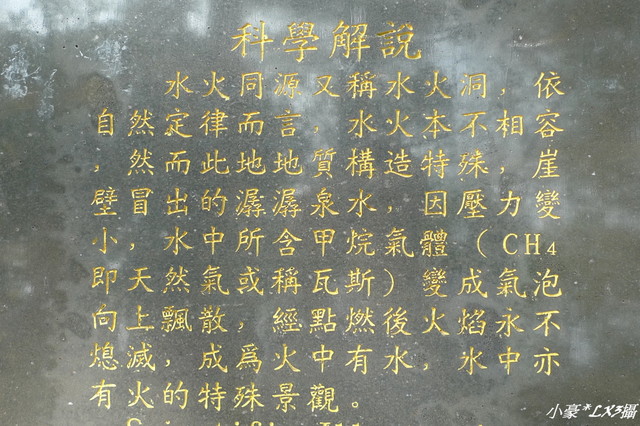 科學解說
水火同源又稱水火洞，依
自然定律而言，水火本不相容
，然而此地地質構造特殊，崖
壁冒出的潺潺泉水，因壓力變
小，水中所含甲烷氣體（CH₄
即天然氣或稱瓦斯）變成氣泡
向上飄散，經點燃後火焰永不
熄滅，成爲火中有水，水中亦
有火的特殊景觀。
小豪*LX3攝